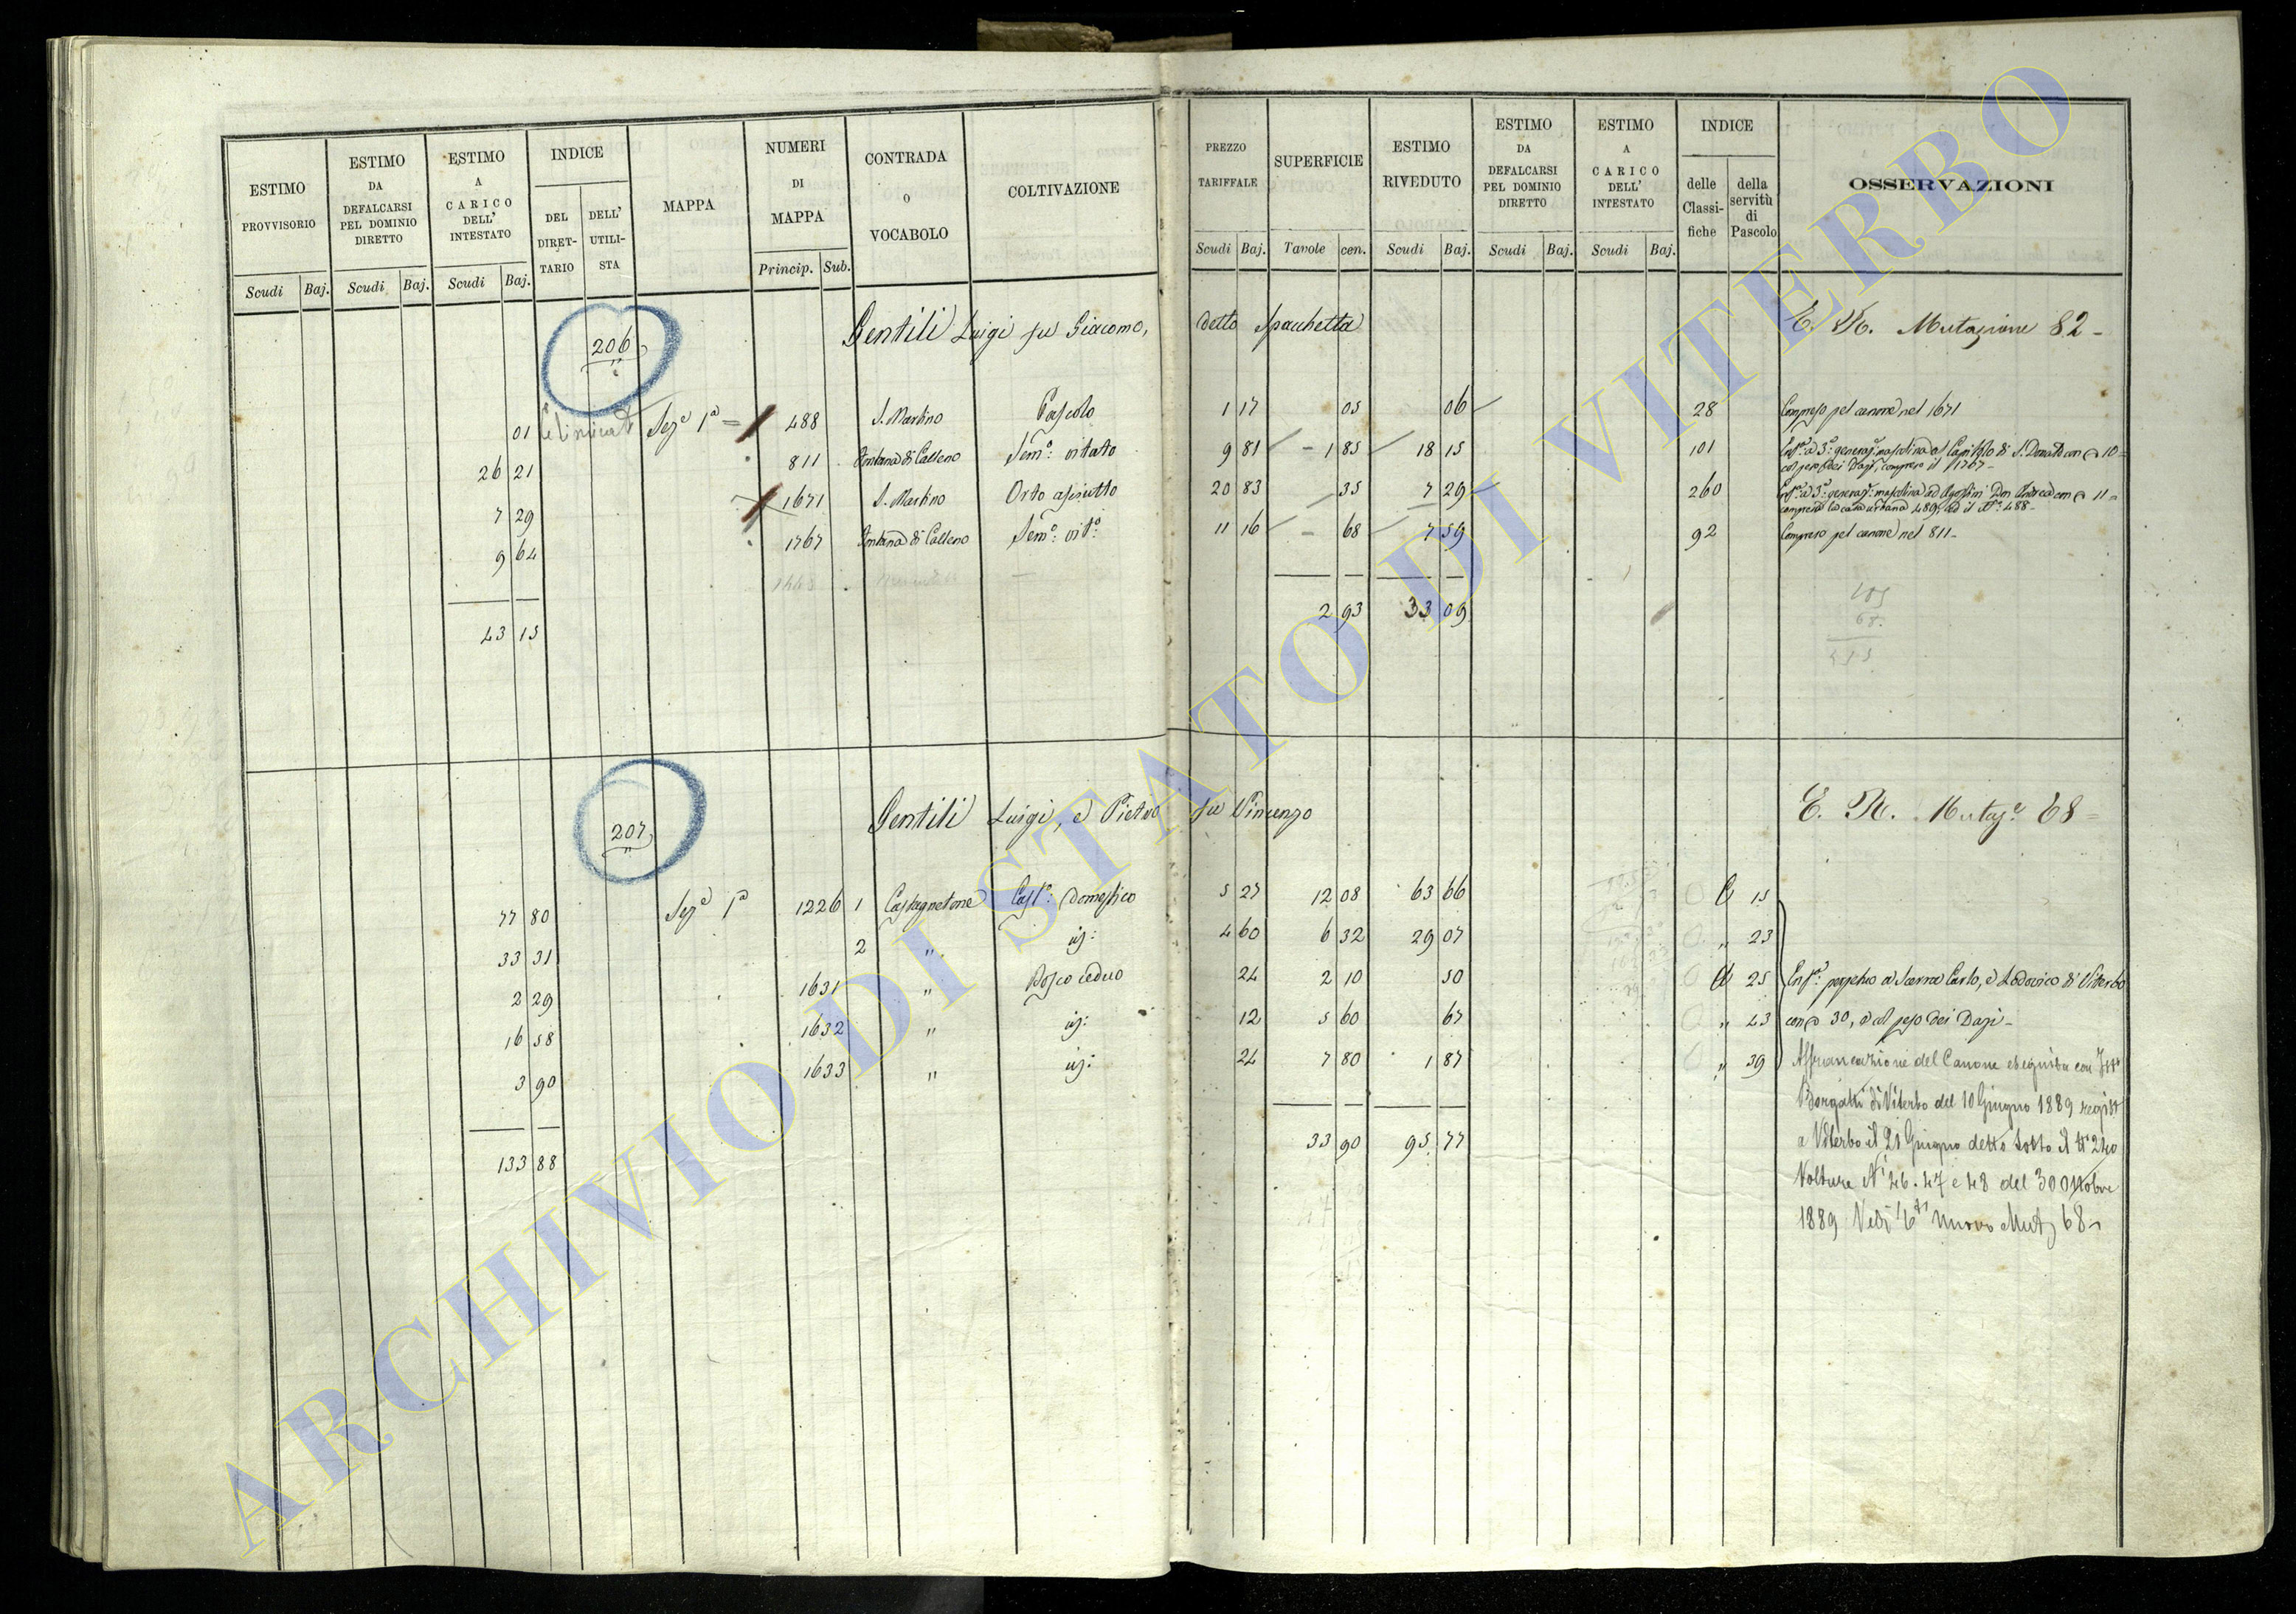 ESTIMO PROVVISORIO Scudi Baj.
ESTIMO DA DEFALCARSI PEL DOMINIO DIRETTO Scudi Baj.
ESTIMO A CARICO DELL' INTESTATO Scudi Baj.
INDICE DEL DIRETTARIO DELL' UTILISTA
MAPPA
NUMERI DI MAPPA Princip. Sub.
CONTRADA O VOCABOLO
COLTIVAZIONE
PREZZO TARIFFALE Scudi Baj.
SUPERFICIE Tavole cen.
ESTIMO RIVEDUTO Scudi Baj.
ESTIMO DA DEFALCARSI PEL DOMINIO DIRETTO Scudi Baj.
ESTIMO A CARICO DELL' INTESTATO Scudi Baj.
INDICE delle Classifiche della servitù di Pascolo
OSSERVAZIONI
206 Gentili Luigi fu Giacomo, detto Spacchetta E. R. Mutazione 82
01 Sez.e 1a 488 S. Martino Pascolo 1 17 05 06 28 Compreso pel canone nel 1671
26 21 811 Fontana di Calleno Sem.o vitato 9 81 1 85 18 15 101 Enf.a a 3a generaz. mascolina al Capitolo di S. Donato con 10
col peso dei Dazi, compreso il 1767
7 29 1671 S. Martino Orto asciutto 20 83 35 7 29 260 Enf.a a 3a generaz. mascolina ad Agostini Don Andrea con 11
compresa la casa urbana 489, ed il N.o 488
9 64 1767 Fontana di Calleno Sem.o vit.o 11 16 68 7 59 92 Compreso pel canone nel 811
43 15 2 93 33 09
207 Gentili Luigi, e Pietro fu Vincenzo E. R. Mutaz.e 68
77 80 Sez.e 1a 1226 1 Castagnetone Cast.o domestico 5 27 12 08 63 66 15
33 31 2 " id: 4 60 6 32 29 07 " 23
2 29 1631 " Bosco ceduo 24 2 10 50 25 Enf.a perpetua a Scerra Carlo, e Lodovico di Viterbo
16 58 1632 " id: 12 5 60 67 " 43 con 30, e col peso dei Dazi
3 90 1633 " id: 24 7 80 1 87 " 39 Affrancazione del Canone eseguita con
Borgatti di Viterbo del 10 Giugno 1889 regist
a Viterbo il 21 Giugno detto sotto il N° 240
133 88 33 90 95 77
Volture Ni 46. 47 e 48 del 30 Ottobre
1889 Vedi nuovo Mut. 68
ARCHIVIO DI STATO DI VITERBO